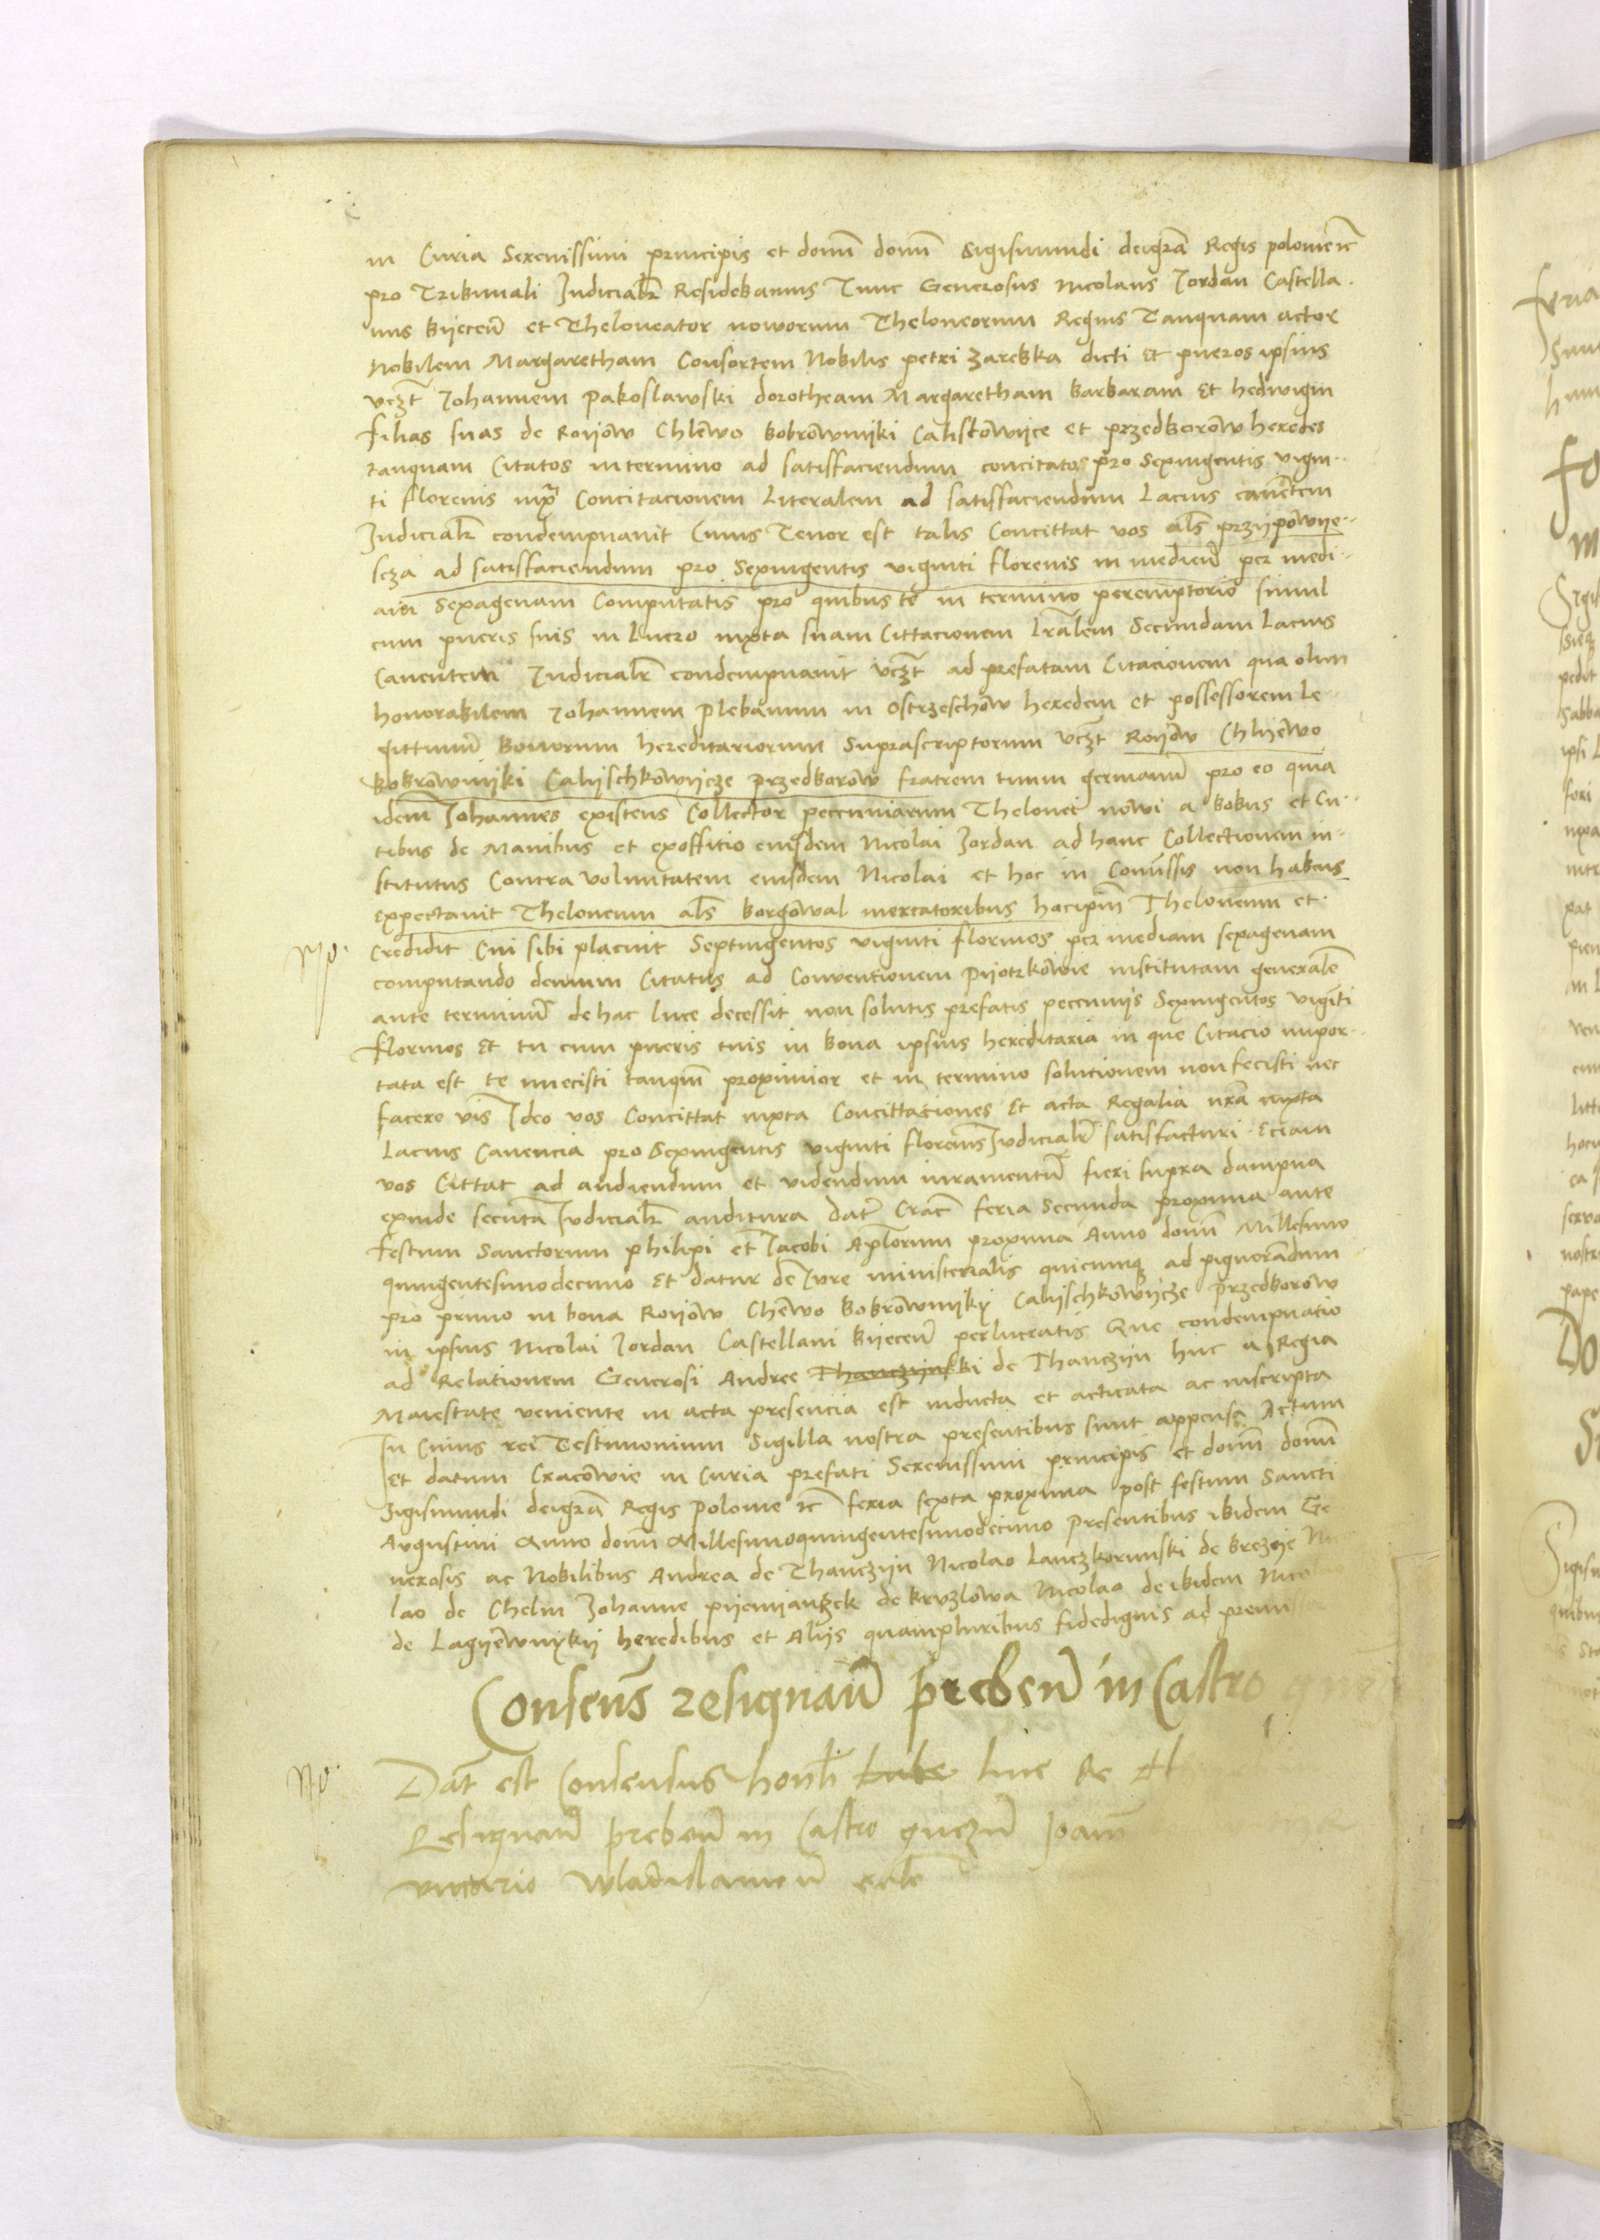 in Curia Serenissimi principis et domī domī Sigismundi deigrā Regis polonie rc̄
pro Tribunali Iudicialr̄ Residebamus Tunc Generosus Nicolaus Iordan Castella.
nus bijeceñ et Theloneator noworum Theloneorum Regius Tanquam actor
Nobilem Margaretham Consortem Nobilis petri zarebka dicti Et pueros ipsius
vcz̄t Johannem pakoslawski dorotheam Margaretham barbaram Et hedwigim
filias suas de Roijow Chlewo bobrowniki Caliskowijce et przedborow heredes
tanquam Citatos in termino ad satisfaciendum concitatos pro Sexingentis vigin..
ti florenis iuxa Concitacionem Literalem ad satisfaciendum Lacius canētem
Iudicialr̄ condempnavit Cuius Tenor est talis Concittat vos als̄ przijpowije..
scza ad satisfaciendum pro Sexingentis viginti florenis in medieū per medi..
am Sexagenam Computatis pro quibus te in termino peremptorio simul
cum pueris suis in Lucro iuxta suam Cittacionem Lrālem Secundam Lacius
Canentem Iudicialr̄ condempnavit vcz̄t ad prefatam Citacionem qua olim
honorabilem Johannem plebanum in Ostrzeschow heredem et possessorem le..
gittimū bonorum hereditariorum Suprascriptorum vcz̄t Roijow Chlijewo
bobrownijki Calijschkowijcze przedborow fratrem tuum germanū pro eo quia
idem Johannes existens Collector peccuniarum Thelonei nowi a bobus et Cu..
tibus de Manibus et exoffitio eiusdem Nicolai Jordan ad hanc Collectionem in..
stitutus Contra voluntatem eiusdem Nicolai et hoc in Comissis non habens
expectavit Theloneum als̄ borgowal mercatoribus hocipm̄ Theloneum et.
Credidit Cui sibi placuit Septingentos viginti florinos per mediam sexagenam
computando demum Citatus ad Conventionem pijotrkowie institutam generalē
ante terminū dehac luce decessit non solutis prefatis peccunijs Sexingentos viginti
florinos Et tu cum pueris tuis in bona ipsius hereditaria in que Citacio impor..
tata est te iniecisti tanqm̄ proximior et in termino solucionem non fecisti nec
facere vis Ideo vos Concittat iuxta Concittationes Et acta Regalia nr̄a iuxta
Lacius Canencia pro Sexingentis viginti florenis Iudicialr̄ satisfacturi. Eciam
vos Cittat ad audiendum et videndum iuramentū fieri supra dampna
exinde secuta Iudicialr̄ auditura Datr̄ Crac̄ feria Secunda proxima ante
festum Sanctorum philipi et Jacobi Aplorum proxima Anno domī Millesimo
quingentesimodecimo Et datur de Iure ministerialis quicumqz ad pignerandum
pro primo in bona Roijow Chewo bobrownijkij Calijschkowijcze przedborow
in ipsius Nicolai Jordan Castellani bijeceñ perlucratis Que condempnatio
ad Relationem Generosi Andree Thanczijnski de Thanczijn huc a Regia
Maiestate veniente in acta presencia est inducta et acticata ac inscripta
In Cuius rei Testimonium Sigilla nostra presentibus sunt appensa Actum
Et datum Cracowie in Curia prefati Serenissimi principis et domī domī
Sigismundi deigrā Regis polonie rc̄ feria sexta proxima post festum Sancti
Augustini Anno domī Millesimoquingentesimodecimo presentibus ibidem Ge
nerosis ac Nobilibus Andrea de Thanczijn Nicolao Lanczkorunski de brezije
lao de Chelm Johanne pijenijanzek de kruzlowa Nicolao de ibidem
de Lagijewnykij heredibus et Alijs quampluribus fidedignis ad
Consens̄ resignanī prebenī in Castro
Dat̄ est Consensus honl̄i luce
Resignanī prebenī in Castro gneznī Joanī
vicario wladislawieñ